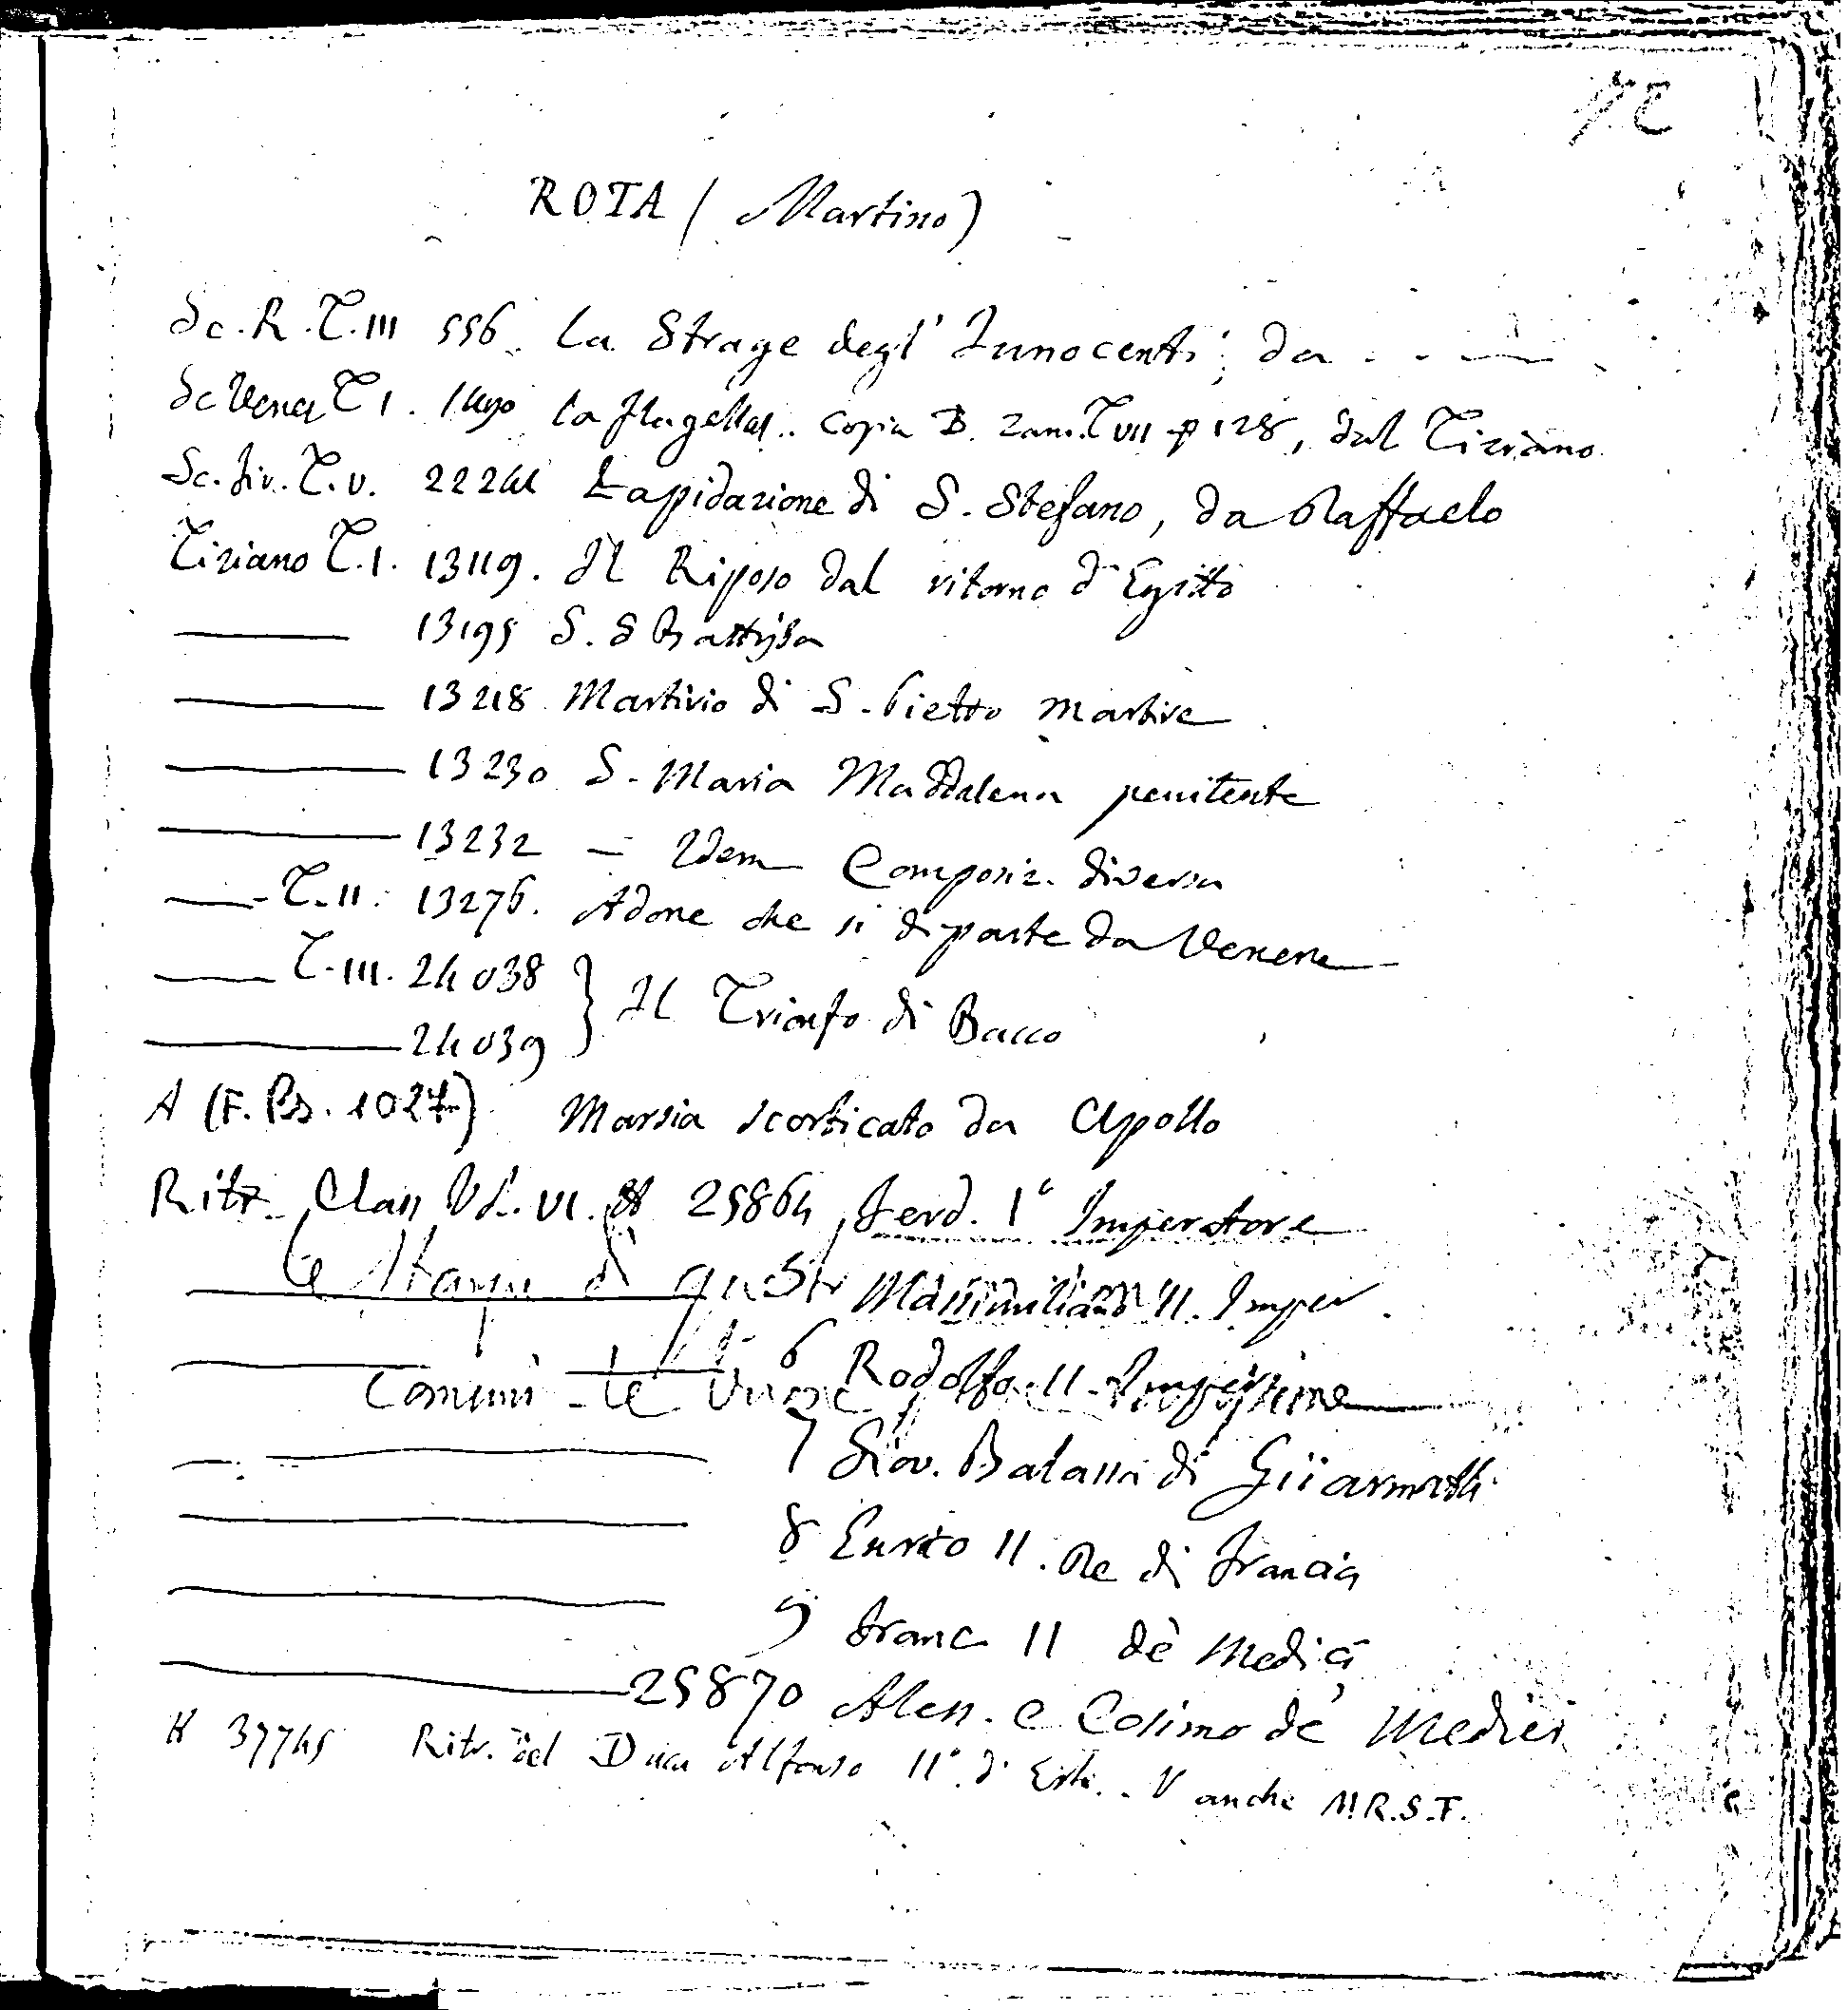 72
ROTA (Martino)
Sc. R. T. III 556. La Strage degl' Innocenti; da . . —
Sc Venez T I. 1490 la flagellaz.. copia B. Zani. T VII p 128, dal Tiziano
Sc. Div. T. V. 22241 Lapidazione di S. Stefano, da Raffaelo
Tiziano T. I. 13119. Il Riposo dal ritorno d'Egitto
— 13195 S. G Battista
— 13218 Martirio di S. Pietro martire
— 13230 S. Maria Maddalena penitente
— 13232 — Idem Composiz. diversa
— T. II. 13276. Adone che si diparte da Venere
— T. III. 24038 } Il Trionfo di Bacco
— 24039
A (F. Ps. 1027) Marsia scorticato da Apollo
Ritr. Class Vol. VI. 25864 Ferd. I° Imperatore
le stampe di questi
— Massimiliano II. Imper.
— 6 Rodolfo II
comuni le
— 7 Giov. Balassi di Giïarmath
— 8 Enrico II. Re di Francia
— 9 Franc II de Medici
— 25870 Aless. e Cosimo de' Medici
K 37745 Ritr. del Duca Alfonso II°. d'Este. . V anche M.R.S.F.